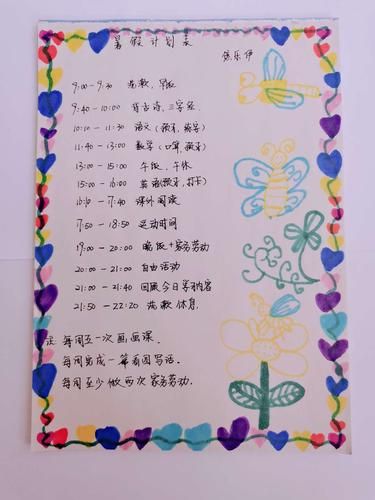 暑假计划表
9:00-9:30 洗漱,早饭
9:40-10:00 背古诗,三字经
10:10-11:30 语文(预习,练字)
11:40-13:00 数学(口算,预习)
13:00-15:00 午饭,午休
15:00-16:00 英语(预习,打卡)
16:10-17:40 课外阅读
17:50-18:50 运动时间
19:00-20:00 晚饭+家务劳动
20:00-21:00 自由活动
21:00-21:40 回顾今日学习内容
21:50-22:20 洗漱休息
注:每周五一次画画课.
每周完成一篇看图写话.
每周至少做两次家务劳动.